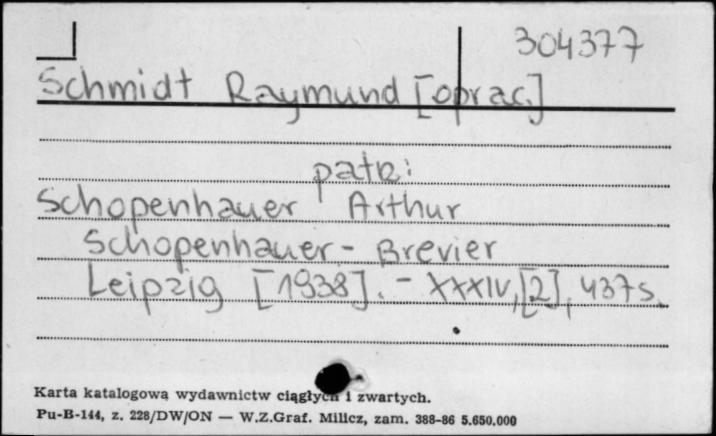 304377
Schmidt Raymund [oprac.]
patrz:
Schopenhauer Arthur
Schopenhauer - Brevier
Leipzig [1938]. - XXXIV, [2], 437 s.
Karta katalogowa wydawnictw ciągłych i zwartych.
Pu-B-144, z. 228/DW/ON — W.Z.Graf. Milicz, zam. 388-86 5.650.000